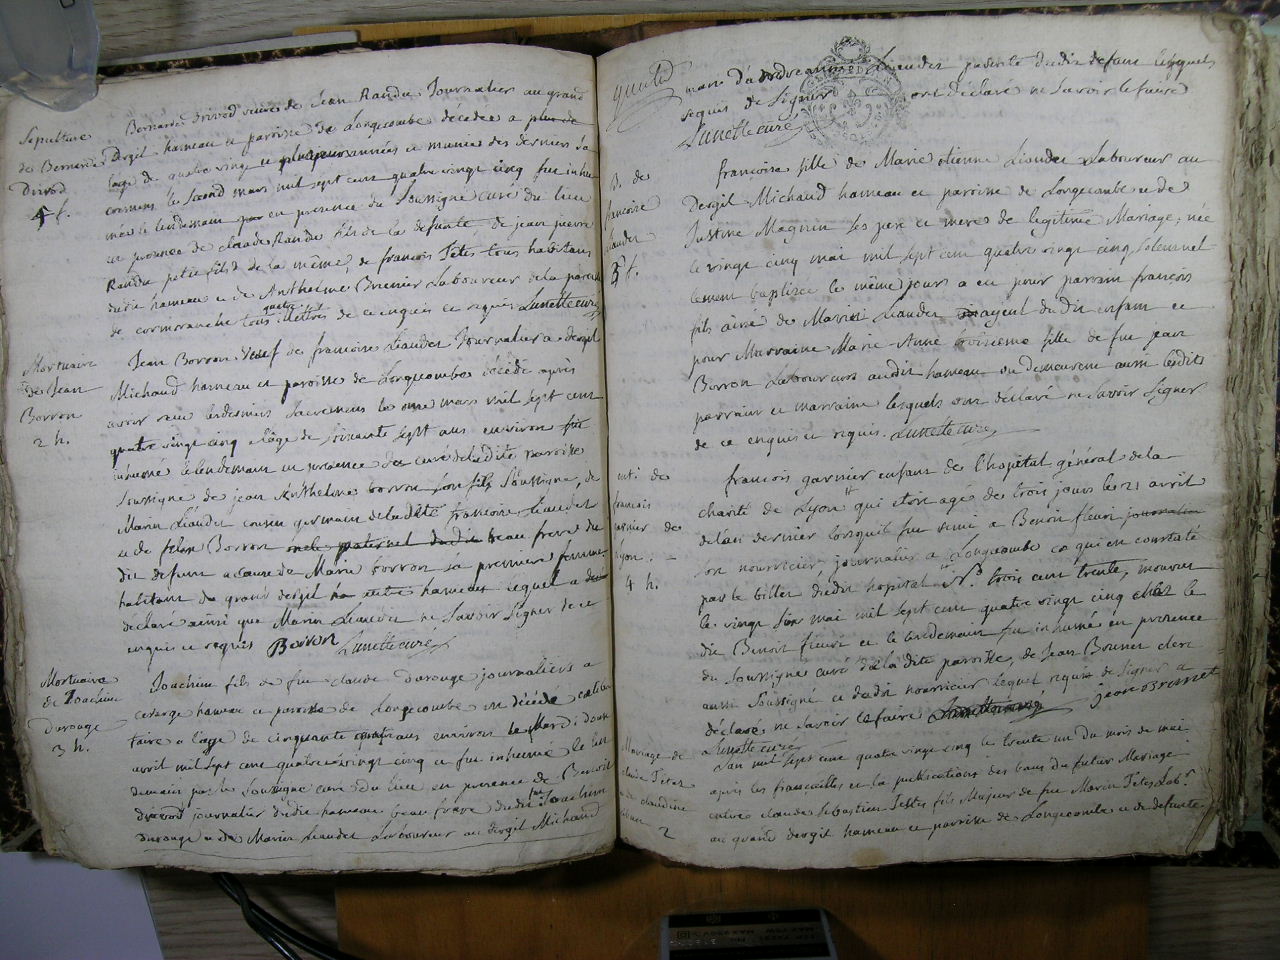 Sepulture
de Bernarde
Drivod
4 f.
Bernarde Drivod veuve de Jean Randu Journalier au grand
Dergil hameau et paroisse de Longecombe décédée a
l'age de quatre vingt et plusieurs années et munie des derniers sa
cremens le second mars mil sept cent quatre vingt cinq fut inhu
mée le lendemain en presence du soussigné curé du lieu
en presence de claude Randu fils de la defunte, de jean pierre
Randu petit fils de la même, de francois Tetes tous habitans
dudit hameau et de Anthelme Brenier Laboureur de la paroisse
de cormoranche tous quatre illettrés de ce enquis et requis Lunette curé
Mortuaire
de Jean
Borron
2 h.
Jean Borron veuf de francoise Liaudet Journalier a dergil
Michaud hameau et paroisse de Longecombe décédé après
avoir reçu les derniers sacremens le onze mars mil sept cent
quatre vingt cinq a l'age de soixante sept ans environ fut
inhumé le lendemain en presence du curé de la dite paroisse
soussigné de jean Anthelme borron son fils soussigné, de
Marin Liaudet cousin germain de la dite francoise Liaudet
et de Borron oncle paternel dudit beau frere du
dit defunt a cause de Marie borron sa premiere femme
habitans du grand dergil hameau lequel a
declaré ainsi que Marin Liaudet ne savoir signer de ce
enquis et requis Borron Lunette curé
Mortuaire
de Joachim
Durouge
3 h.
Joachim fils de feu claude durouge journaliers a
cerarge hameau et paroisse de Longecombe décédé
a l'age de cinquante ans environ le Mardi douze
avril mil sept cent quatre vingt cinq et fut inhumé le len
demain par le soussigné curé du lieu en presence de Benoit
drevod journalier dudit hameau beau frere dudit Joachim
Durouge et de Marin Liaudet Laboureur au dergil Michaud
mari d'a Liaudet parente dudit defunt lesquels
requis de signer ont déclaré ne savoir le faire
Lunette curé
B. de
francoise
Liaudet
3 f.
francoise fille de Marie etienne Liaudet Laboureur au
Dergil Michaud hameau et paroisse de Longecombe et de
Justine Magnin ses pere et mere de legitime Mariage, née
le vingt cinq mai mil sept cent quatre vingt cinq solemnel
lement baptisée le même jours a eu pour parrain françois
fils ainé de Marin Liaudet ayeul dudit enfant et
pour Marraine Marie-Anne troisieme fille de feu jean
Borron Laboureurs audit hameau ou demeurent aussi lesdits
parrain et marraine lesquels ont déclaré ne savoir signer
de ce enquis et requis. Lunette curé
mt. de
françois
garnier de
lyon.
4 h.
francois garnier enfant de l'hopital général de la
charité de Lyon qui étoit agé de trois jours le 21 avril
de l'an dernier lorsqu'il fut remi a Benoit fleuri journalier
son nourricier journalier a Longecombe ce qui est constaté
par le billet dudit hopital N°. trois cent trente, mourut
le vingt six mai mil sept cent quatre vingt cinq chez le
dit Benoit fleuri et le lendemain fut inhumé en presence
du soussigné curé de la dite paroisse, de Jean Brunet clerc
aussi soussigné et dudit nourricier lequel requis de signer a
déclaré ne savoir le faire jean Brunet
Lunette curé
Mariage de
claude Tetes
et de claudine
2
L'an mil sept cent quatre vingt cinq le trente un du mois de mai
après les fiancailles, et la publications des bans du futur Mariage
entre claude Sebastien Testes fils Majeur de feu Marin Tetes Lab.r
au grand dergil hameau et paroisse de Longecombe et de defunte